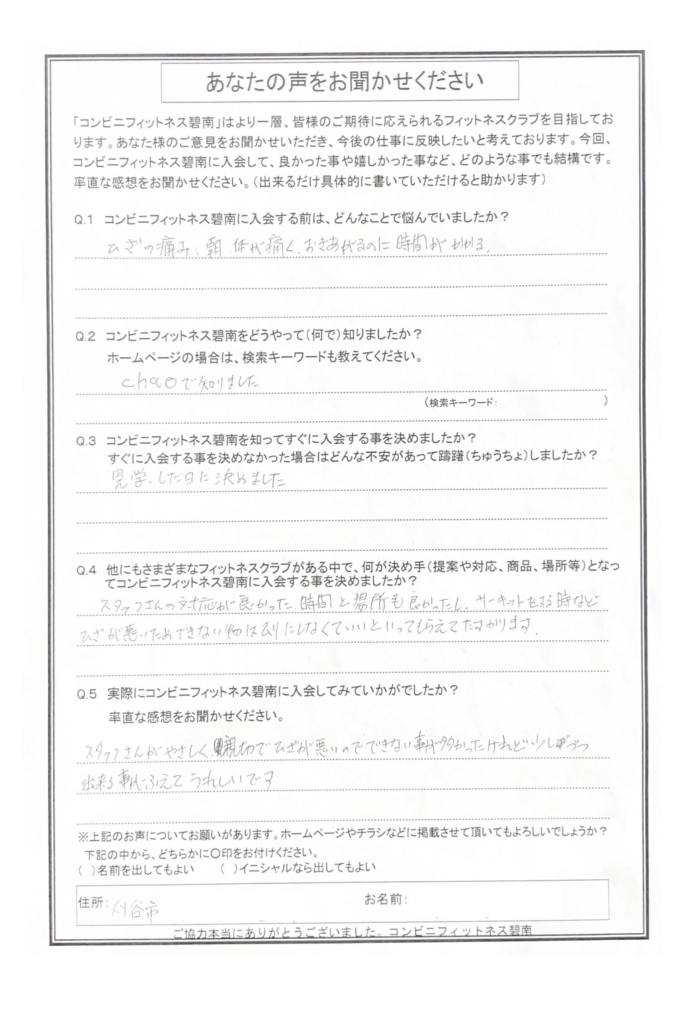 あなたの声をお聞かせください
「コンビニフィットネス碧南」はより一層、皆様のご期待に応えられるフィットネスクラブを目指してお
ります。あなた様のご意見をお聞かせいただき、今後の仕事に反映したいと考えております。今回、
コンビニフィットネス碧南に入会して、良かった事や嬉しかった事など、どのような事でも結構です。
率直な感想をお聞かせください。(出来るだけ具体的に書いていただけると助かります)
Q.1 コンビニフィットネス碧南に入会する前は、どんなことで悩んでいましたか？
ひざの痛み、朝 体が痛く、おきあがるのに時間がかかる。
Q.2 コンビニフィットネス碧南をどうやって(何で)知りましたか？
ホームページの場合は、検索キーワードも教えてください。
chaoで知りました
(検索キーワード: )
Q.3 コンビニフィットネス碧南を知ってすぐに入会する事を決めましたか？
すぐに入会する事を決めなかった場合はどんな不安があって躊躇(ちゅうちょ)しましたか？
見学、した日に決めました
Q.4 他にもさまざまなフィットネスクラブがある中で、何が決め手(提案や対応、商品、場所等)となっ
てコンビニフィットネス碧南に入会する事を決めましたか？
スタッフさんの対応が良かった、時間と場所も良かったし、サーキットをする時など
ひざが悪いためできない物はムリにしなくていいといってもらえてたすかります。
Q.5 実際にコンビニフィットネス碧南に入会してみていかがでしたか？
率直な感想をお聞かせください。
スタッフさんがやさしく、親切でひざが悪いのでできない事が多かったけれど少しずつ
出来る事がふえてうれしいです
※上記のお声についてお願いがあります。ホームページやチラシなどに掲載させて頂いてもよろしいでしょうか？
下記の中から、どちらかに〇印をお付けください。
( )名前を出してもよい ( )イニシャルなら出してもよい
住所: 刈谷市 お名前:
ご協力本当にありがとうございました。コンビニフィットネス碧南